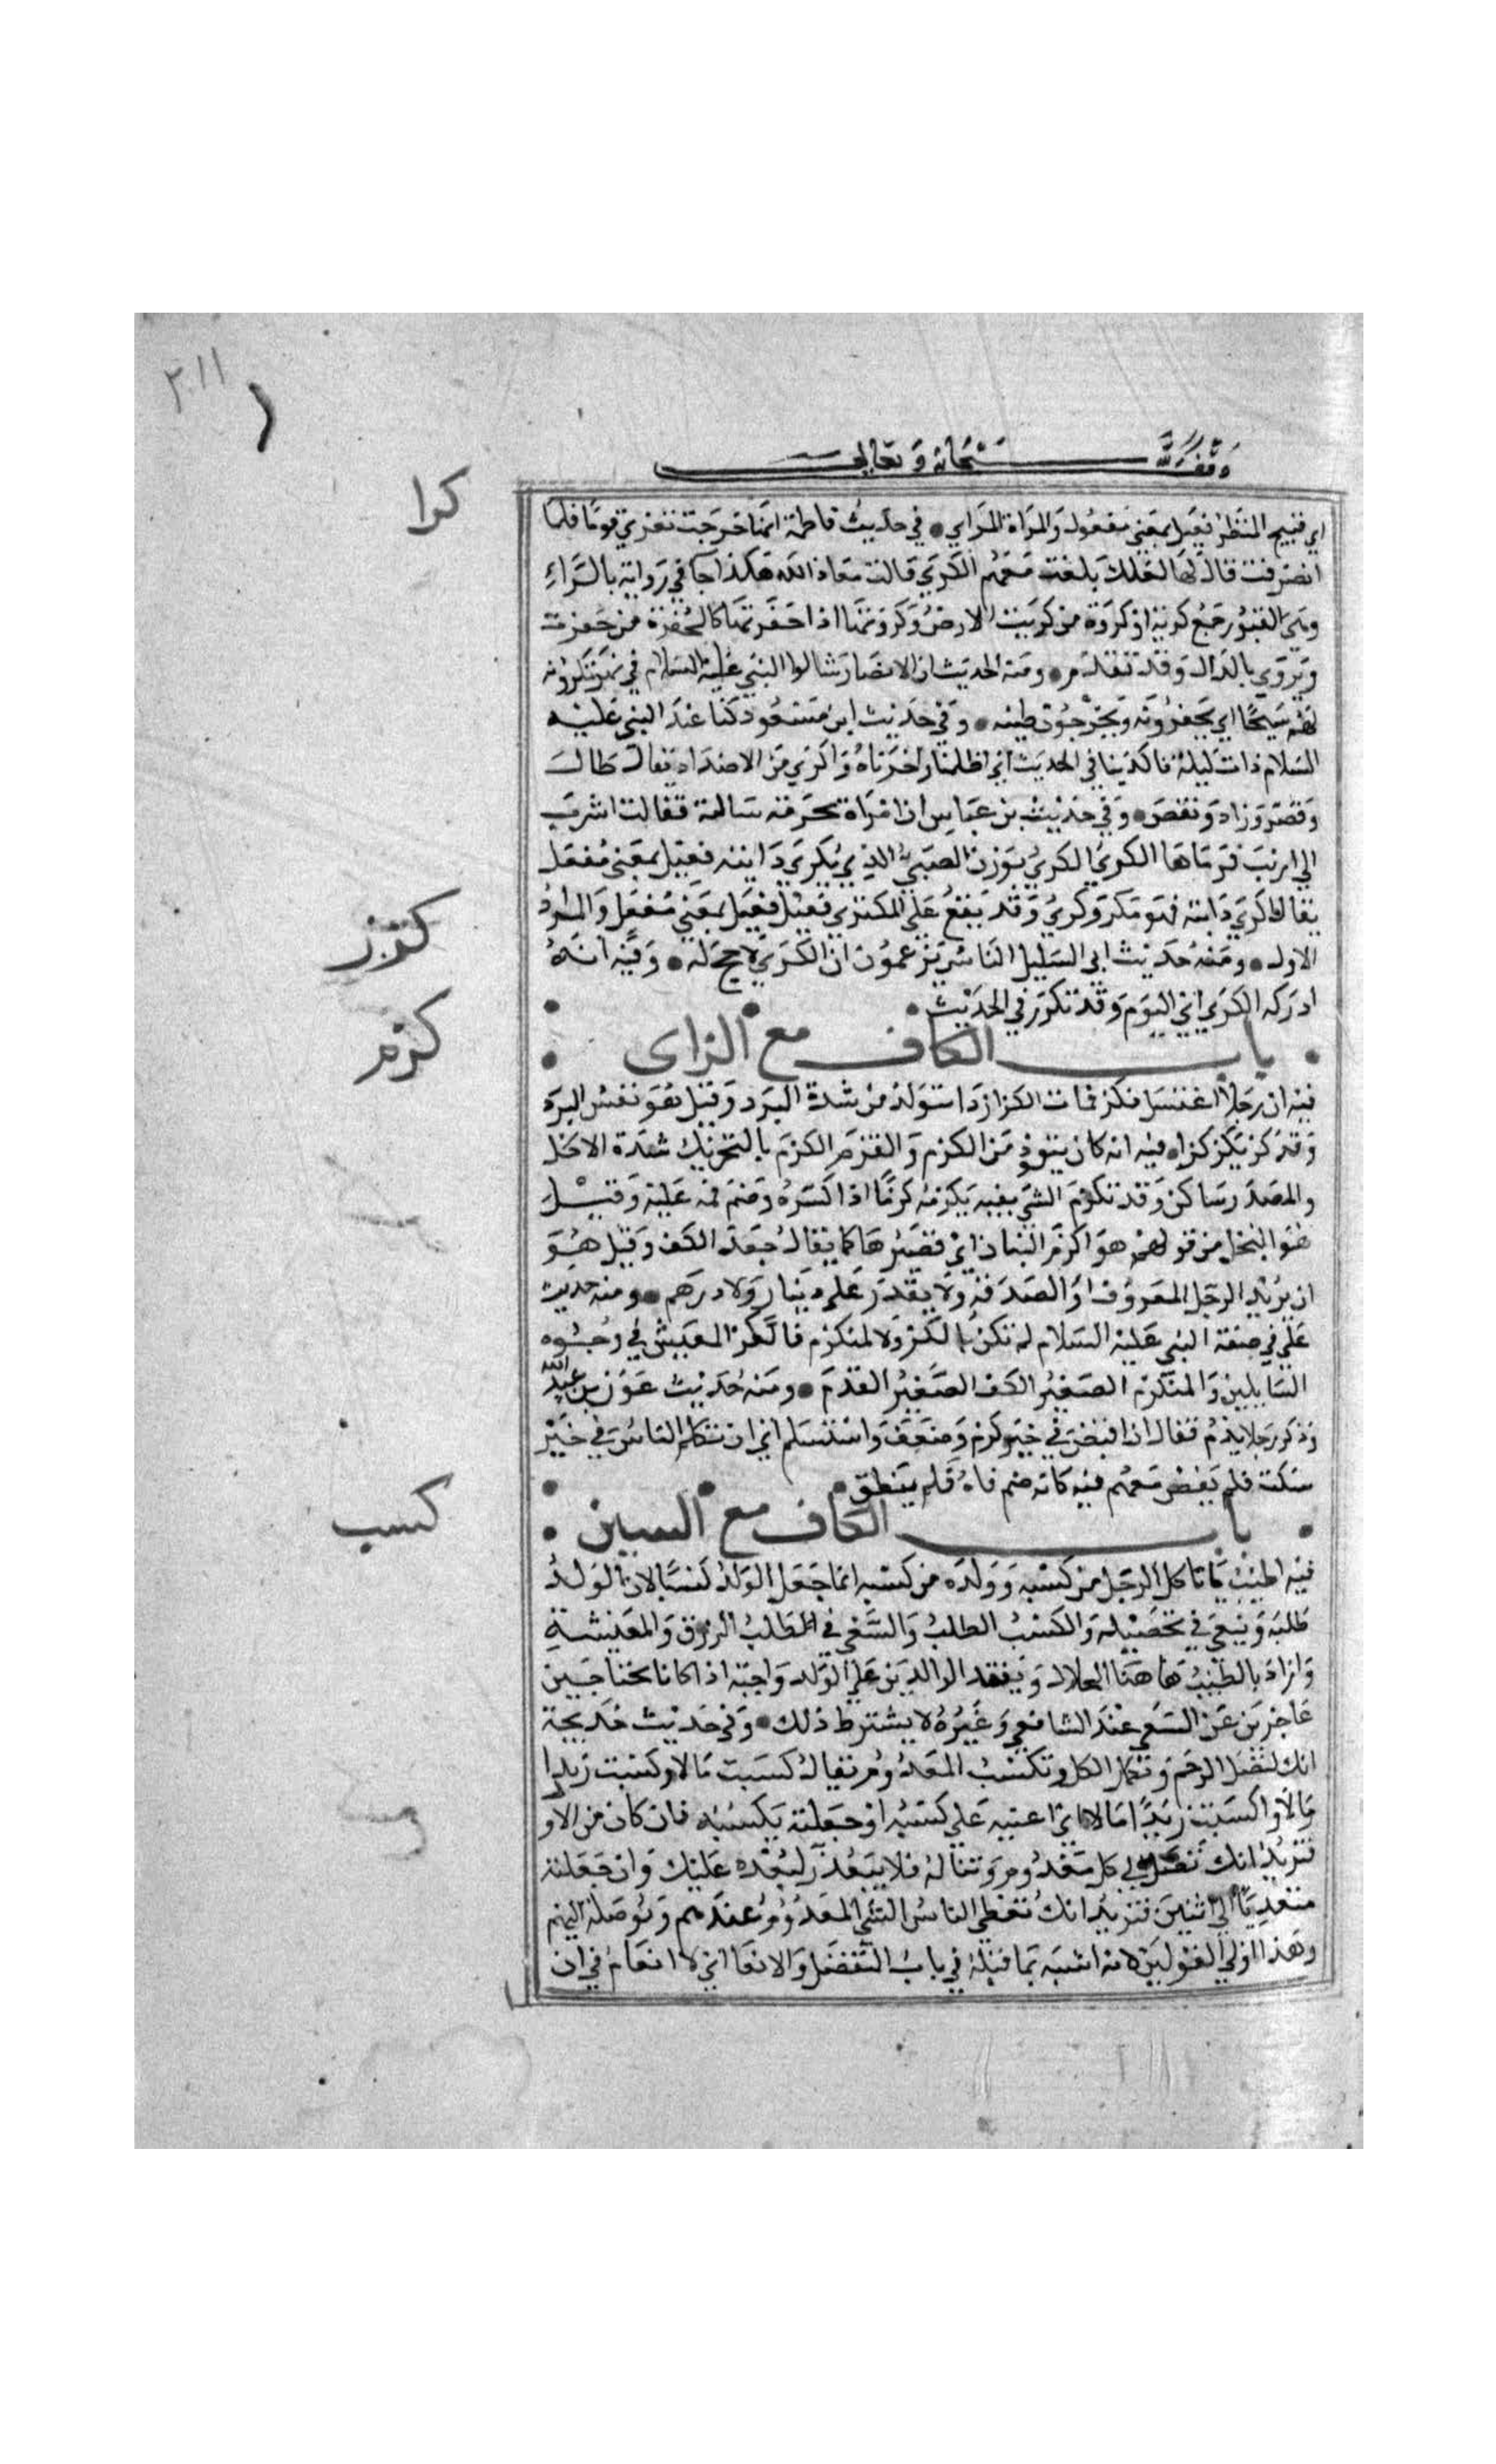 ٢١١
وقف لله سبحانه وتعالى
كرا
اي قبيح المنظر فعيل بمعني مفعول والمراة المراي في حديث فاطمة انها خرجت تعزي قوما فلما
انصرفت قال لها لعلك بلغت معهم الكري قالت معاذ الله هكذا جا في رواية بالراء
وهي القبور جمع كرية او كروة من كريت الارض وكروتها اذا حفرتها كالحفرة من حفرت
ويروي بالدال وقد تقدم ومنه الحديث ان الانصار سالوا النبي عليه السلام في نهر يكرونه
لهم سيحا اي يحفرونه ويخرجون طينه وفي حديث ابن مسعود كنا عند النبي عليه
السلام ذات ليلة فاكرينا في الحديث اي اطلناه واخرناه واكري من الاضداد يقال طال
وقصر وزاد ونقص وفي حديث بن عباس ان امراة محرمة سالته فقالت اشرت
الي ارنب فرماها الكري الكري بوزن الصبي الذي يكري دابته فعيل بمعني مفعل
يقال اكري دابته فهو مكر وكري وقد يقع علي المكتري فعيل بمعني مفتعل والمراد
الاول ومنه حديث ابي السليل الناس يزعمون ان الكري لا حج له وفيه انه
ادركه الكري اي النوم وقد تكرر في الحديث
باب الكاف مع الزاى
كزز
فيه ان رجلا اغتسل فكز فمات الكزاز دا يتولد من شدة البرد وقيل هو نفس البرد
كزم
وقد كز يكز كزا فيه انه كان يتعوذ من الكزم والقزم الكزم بالتحريك شدة الاكل
والمصدر ساكن وقد كزم الشي بفيه يكزمه كزما اذا كسره وضم فمه عليه وقيل
هو البخل من قولهم هو اكزم البنان اي قصيرها كما يقال جعد الكف وقيل هو
ان يريد الرجل المعروف او الصدقة ولا يقدر علي دينار ولا درهم ومنه حديث
علي في صفة النبي عليه السلام لم يكن بالكز ولا المنكزم فالكز المعبس في وجوه
السايلين والمنكزم الصغير الكف الصغير القدم ومنه حديث عون بن عبد الله
وذكر رجلا يذم فقال ان افيض في خير كزم وضعف واستسلم اي ان تكلم الناس في خير
سكت فلم يفض معهم فيه كانه ضم فاه فلم ينطق
باب الكاف مع السين
كسب
فيه اطيب ما تاكل الرجل من كسبه وولده من كسبه انما جعل الولد كسبا لان الولد
طلبه وسعي في تحصيله والكسب الطلب والسعي في طلب الرزق والمعيشة
واراد بالطيب هاهنا الحلال ونفقة الوالدين علي الولد واجبة اذا كانا محتاجين
عاجزين عن السعي عند الشافعي وغيره لا يشترط ذلك وفي حديث خديجة
انك لتصل الرحم وتحمل الكل وتكسب المعدوم يقال كسبت مالا وكسبت زيدا
مالا واكسبت زيدا مالا اي اعنته علي كسبه او جعلته يكسبه فان كان من الاو
فتريد انك تصل الي كل معدوم وتناله فلا يتعذر لبعده عليك وان جعلته
متعديا الي اثنين فتريد انك تعطي الناس الشي المعدوم عندهم وتوصله اليهم
وهذا اولي القولين لانه اشبه بما قبله في باب التفضل والانعا اذ لا انعام في ان